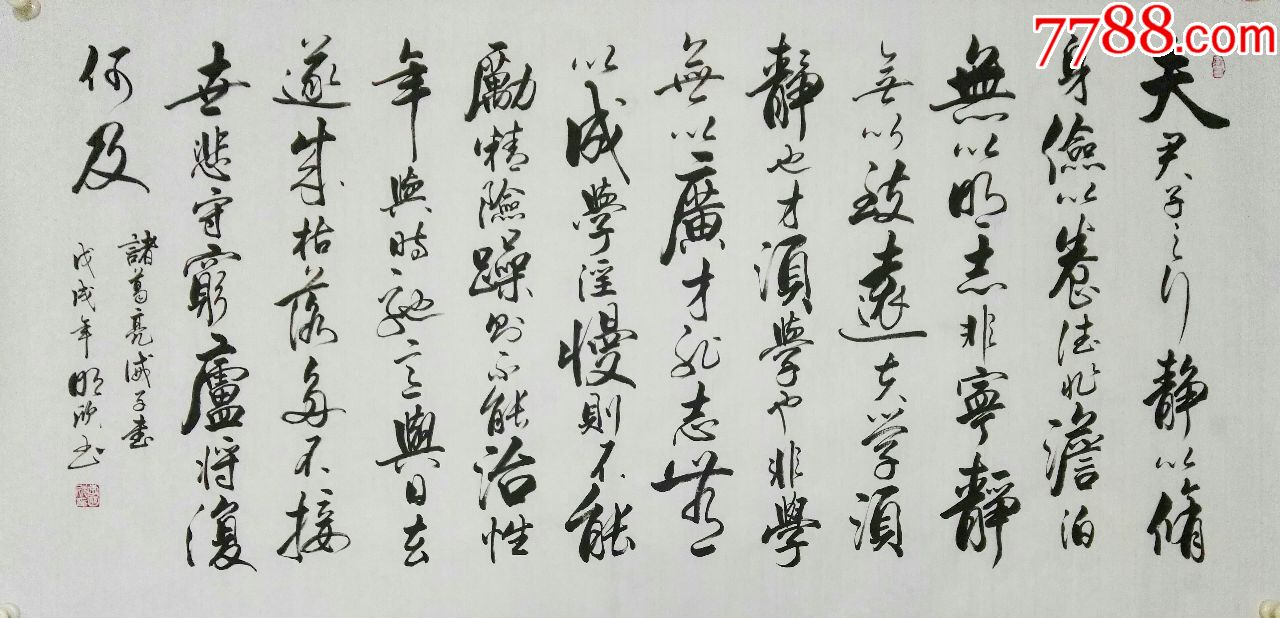 7788.com
夫君子之行静以脩
身儉以養德非澹泊
無以明志非寧静
無以致遠夫學須
静也才須學也非學
無以廣才非志無
以成學淫慢則不能
勵精險躁則不能治性
年與時馳意與日去
遂成枯落多不接
世悲守窮廬將復
何及
諸葛亮誡子書
戊戌年明书